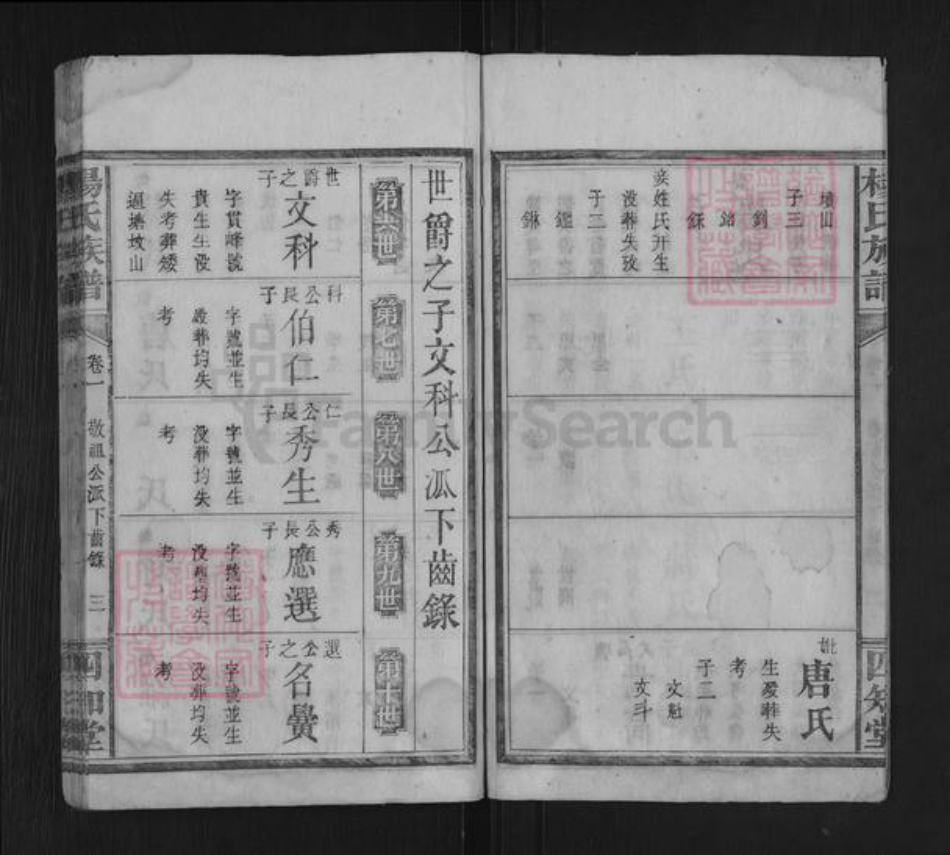 楊氏族譜
四知堂
墳山
子三
釗
銘
接姓氏幵生
没葬失攷
子二
鑑
妣唐氏
生殁葬失
考
子二
文魁
文斗
世爵之子文科公派下齒錄
第六世
第七世
第八世
第九世
第十世
世爵之子
文科
字貫峰號
貴生生没
失考葬矮
逕塘坟山
科公長子
伯仁
字號並生
殁葬均失
考
仁公長子
秀生
字號並生
没葬均失
考
秀公長子
應選
字號並生
没葬均失
考
選公之子
名釁
字號並生
没葬均失
考
楊氏族譜
卷一
敬祖公派下齒錄
三
四知堂
FamilySearch